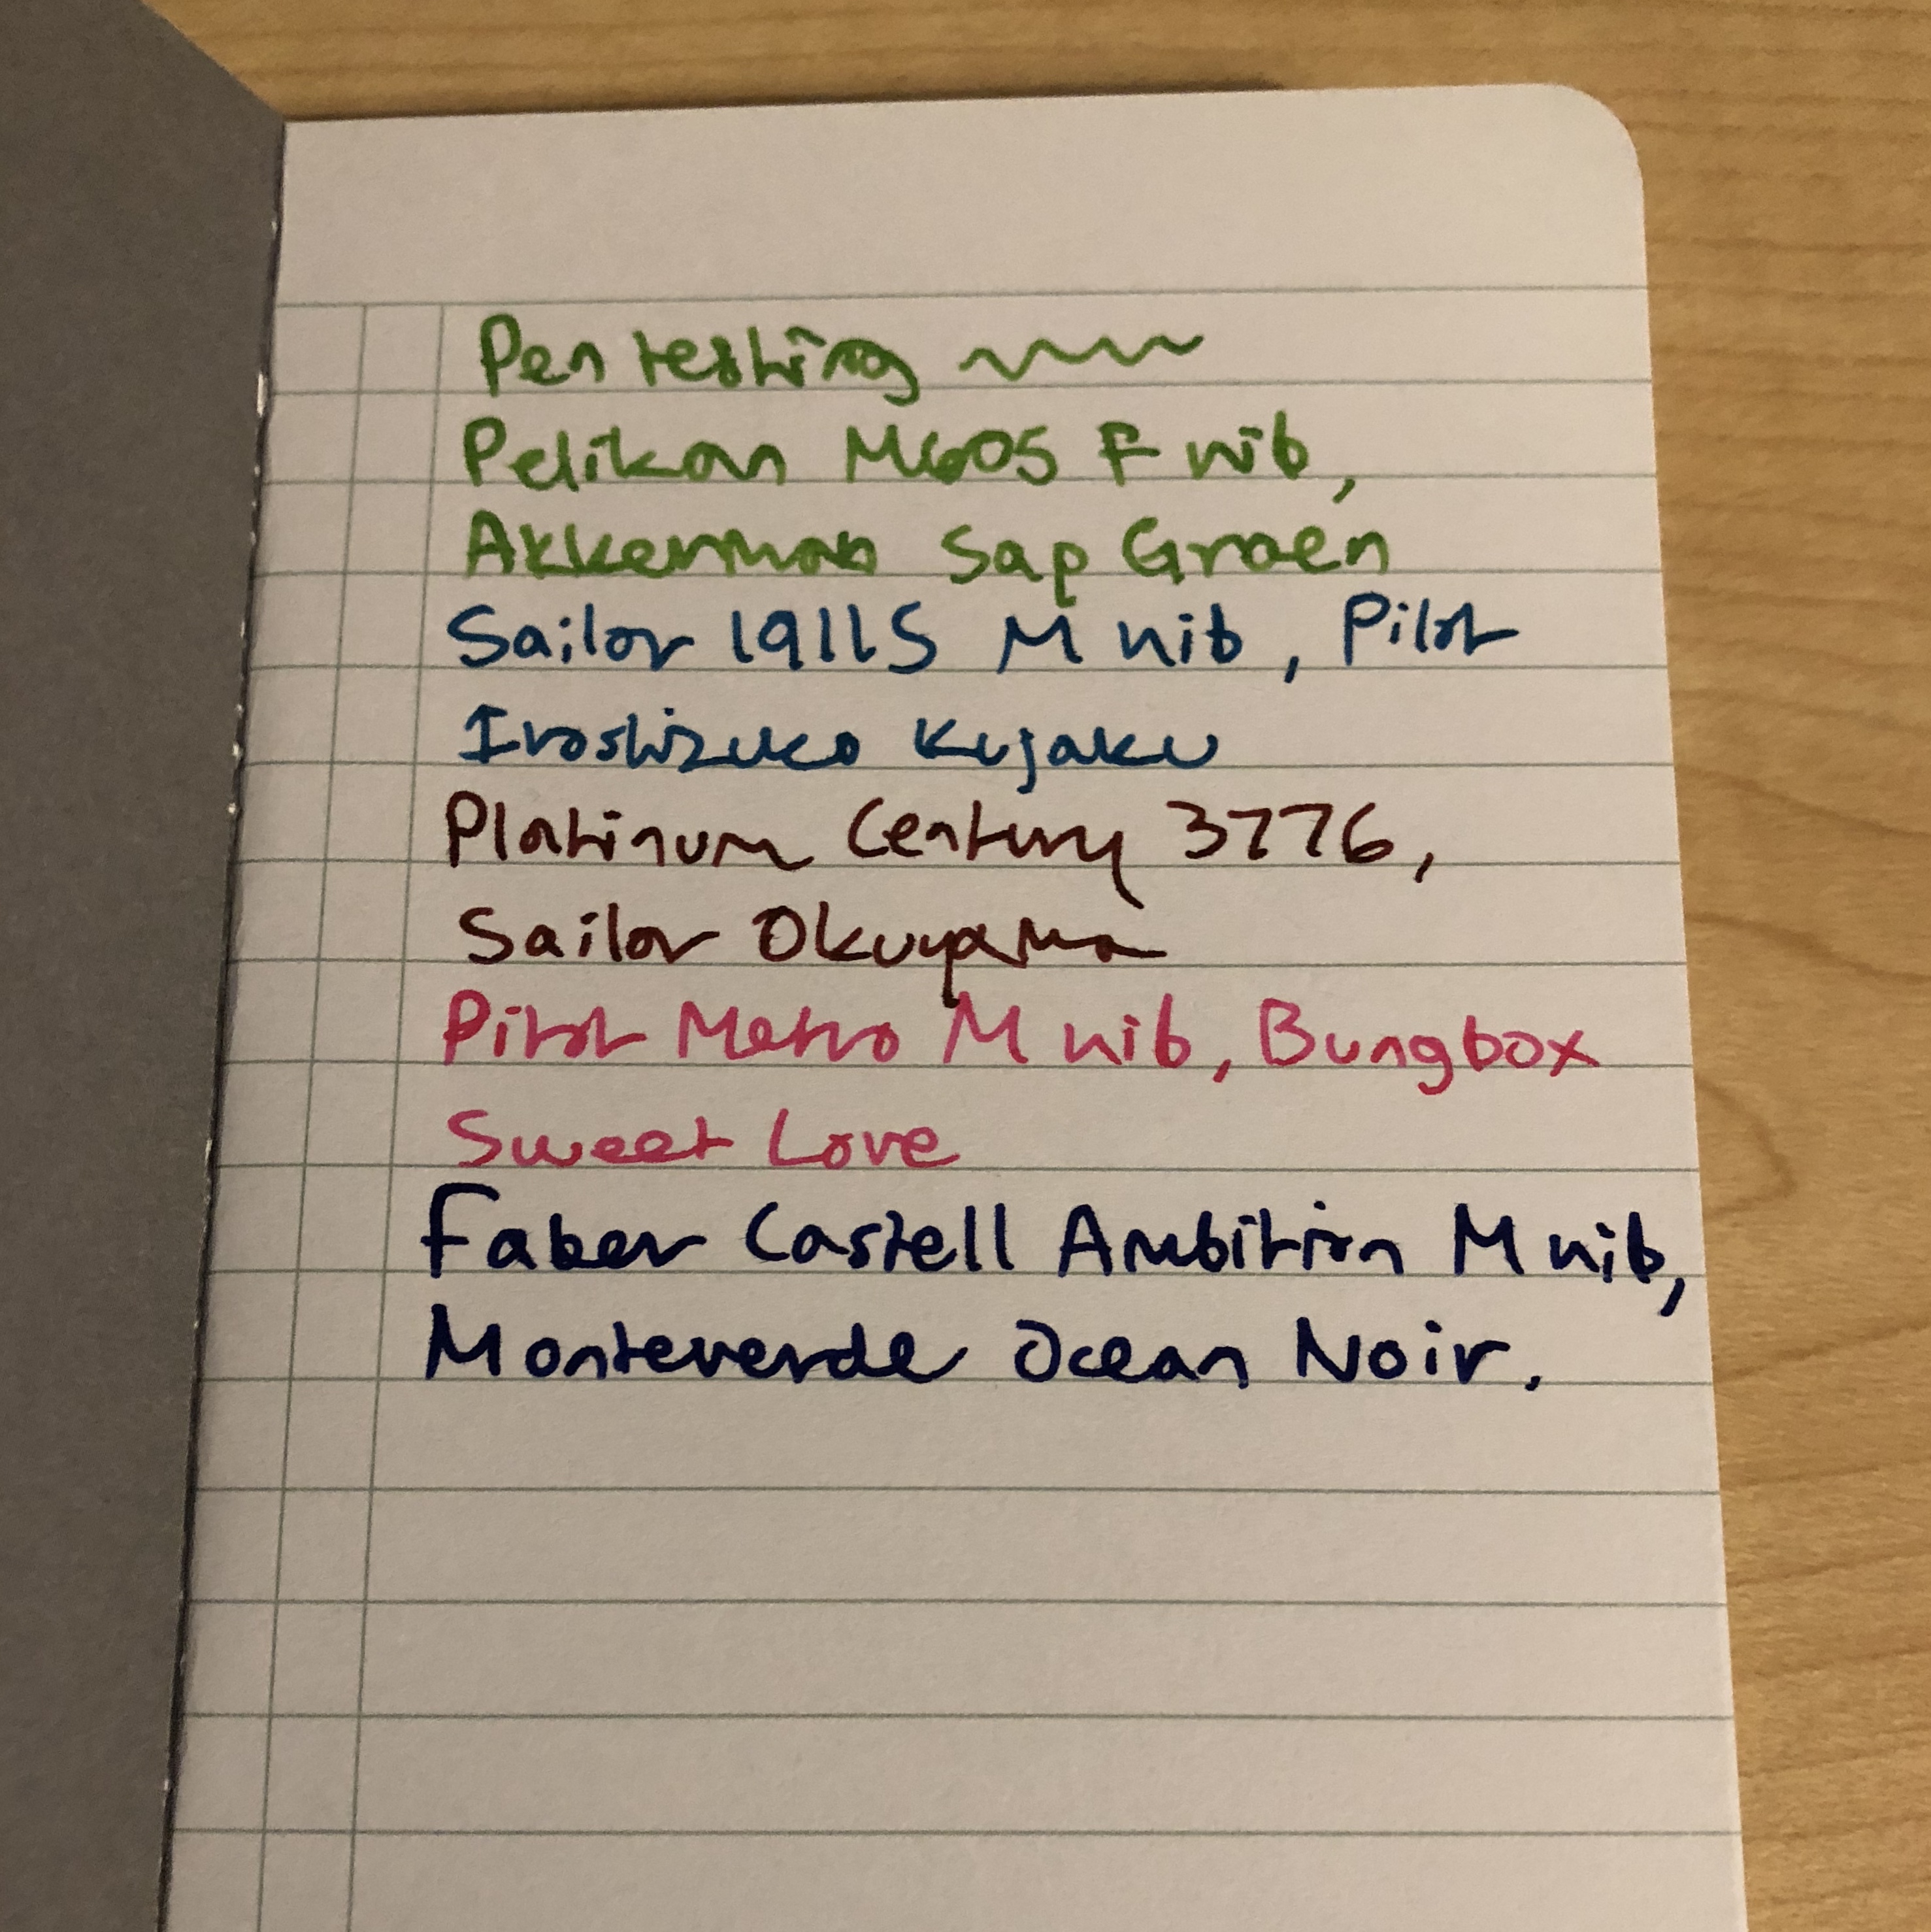 Pen testing
Pelikan M605 F nib,
Akkerman Sap Groen
Sailor 1911S M nib, Pilot
Iroshizuko Kujaku
Platinum Century 3776,
Sailor Okuyama
Pilot Metro M nib, Bungbox
Sweet Love
Faber Castell Ambition M nib,
Monteverde Ocean Noir.